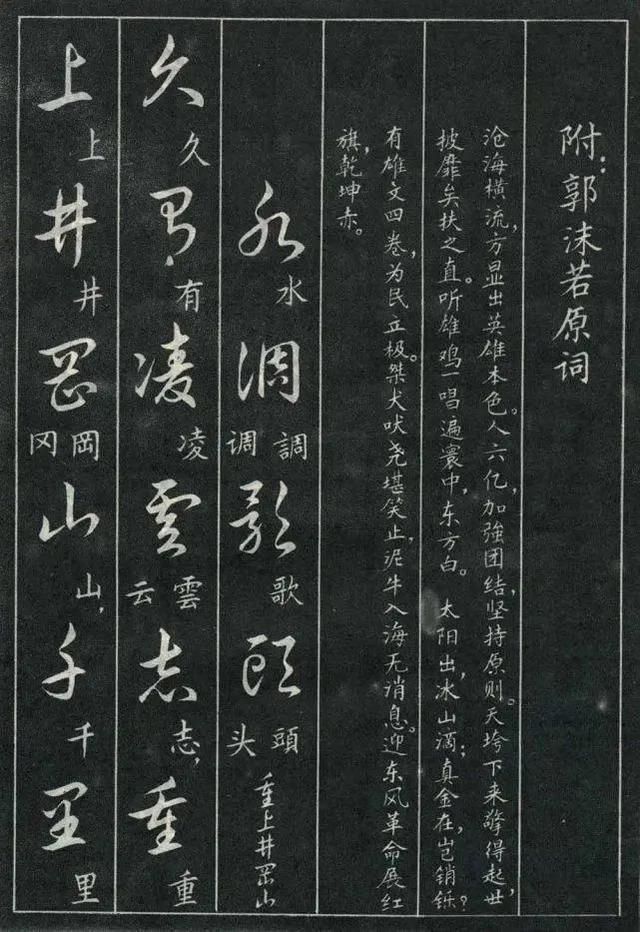 附：郭沫若原词
沧海横流，方显出英雄本色。人六亿，加強团结，坚持原则。天垮下来擎得起，世
披靡矣扶之直。听雄鸡一唱遍寰中，东方白。 太阳出，冰山滴；真金在，岂销铄？
有雄文四卷，为民立极。桀犬吠尧堪笑止，泥牛入海无消息。迎东风革命展红
旗，乾坤赤。
水調歌頭 重上井岡山
水 調 调 歌 頭 头
久有凌雲志重
久 有 凌 雲 云 志， 重
上井岡山千里
上 井 岡 冈 山， 千 里